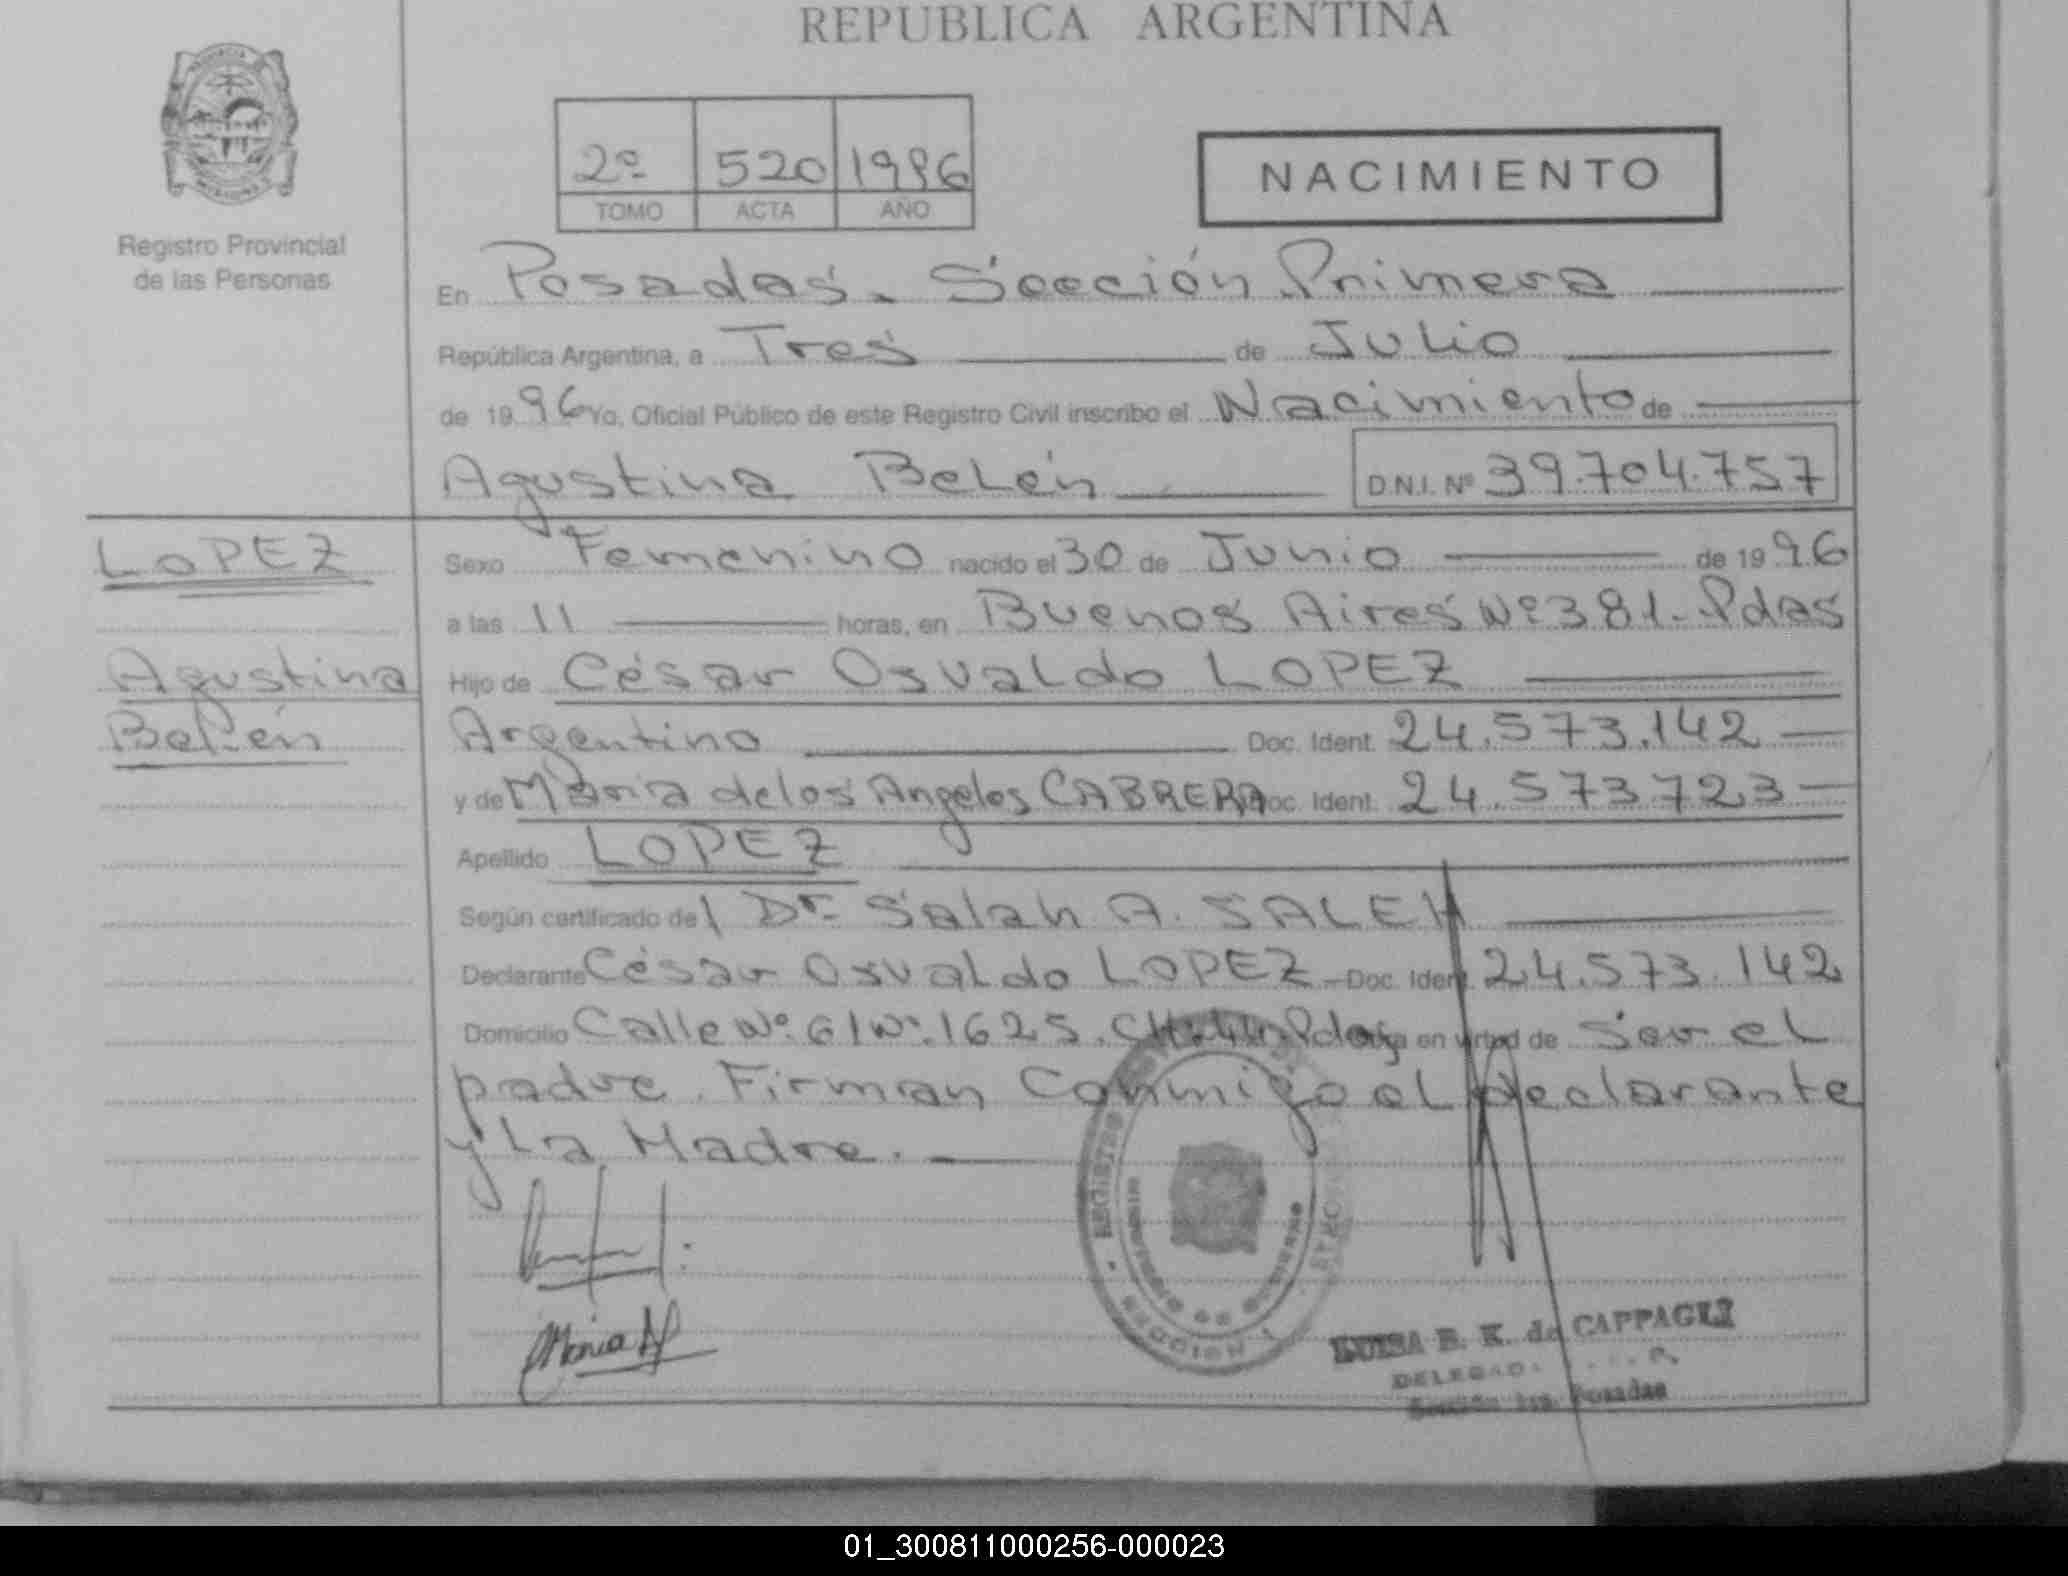 REPUBLICA ARGENTINA
PROVINCIA
MISIONES
Registro Provincial
de las Personas
2º 520 1996
TOMO ACTA AÑO
NACIMIENTO
En Posadas. Sección Primera
República Argentina, a Tres de Julio
de 1996 Yo, Oficial Público de este Registro Civil inscribo el Nacimiento de
Agustina Belén D.N.I. Nº 39.704.757
LOPEZ
Agustina
Belén
Sexo Femenino nacido el 30 de Junio de 1996
a las 11 horas, en Buenos Aires Nº 381-Pdas
Hijo de César Osvaldo LOPEZ
Argentino Doc. Ident. 24.573.142
y de María de los Angeles CABRERA Doc. Ident. 24.573723
Apellido LOPEZ
Según certificado de Dr. Salah A. SALEH
Declarante César Osvaldo LOPEZ Doc. Ident. 24.573.142
Domicilio Calle Nº 61 Nº 1625. Pdas en virtud de Ser el
padre. Firman Conmigo el declarante
y La Madre.
María
LUISA E. K. de CAPPAGLI
DELEGADA R. P.
Sección 1ra. Posadas
REGISTRO
SECCION 1
01_300811000256-000023